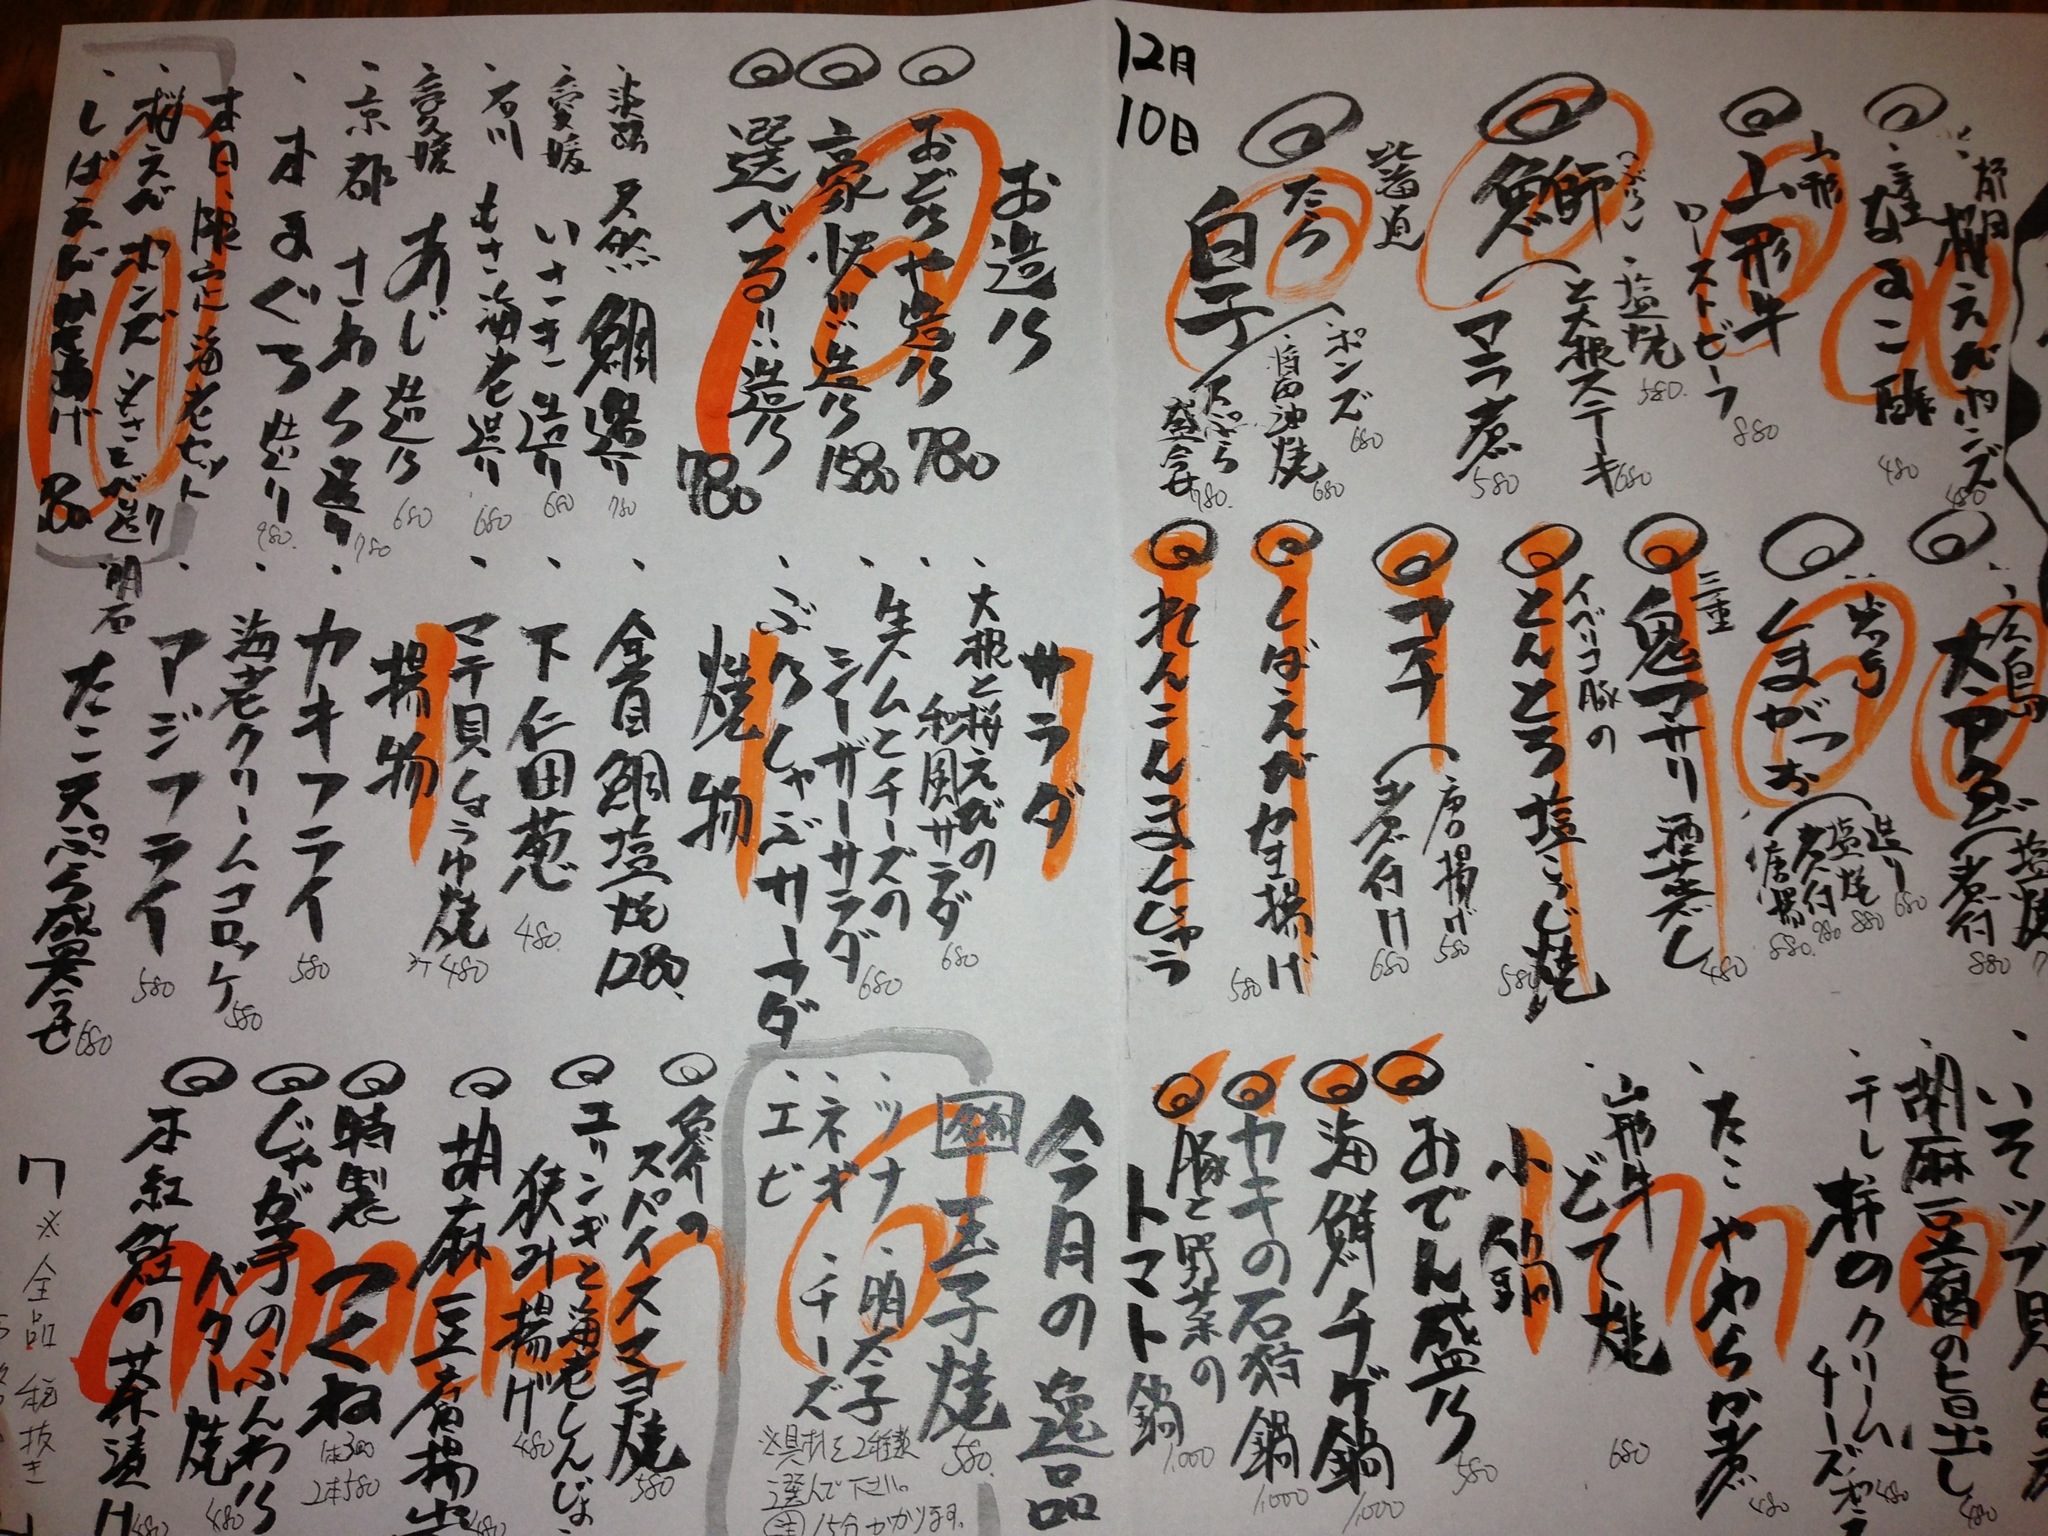 12月
10日
桜えびポンズ
480
なまこ酢
480
山形
山形牛
ローストビーフ
880
鰤
塩焼
580
と大根ステーキ
680
アラ煮
580
北海道
たら
白子
ポンズ
680
醤油焼
680
天ぷら
盛合せ
780
お造り
おどや造り 780
豪快!!!造り 1580
選べる!!造り
780
淡路 天然 鯛造り
780
愛媛 いさき造り
680
石川 もさ海老造り
680
愛媛 あじ造り
680
京都 さわら造り
780
本まぐろ造り
980
本日限定海老セット
桜えびポンズ
しばえびかき揚げ 780
塩焼
煮付
880
しまがつお
造り 680
塩焼 880
煮付
唐揚 880
三重
鬼アサリ酒蒸し
480
イベリコ豚の
とんとろ塩こうじ焼
580
コチ
唐揚げ
580
煮付け
680
しばえびかき揚げ
580
れんこんまんじゅう
サラダ
大根と桜えびの
和風サラダ
680
生ハムとチーズの
シーザーサラダ
680
ぶりしゃぶサラダ
焼物
金目鯛塩焼 1280
下仁田葱
480
マテ貝しょうゆ焼
480
揚物
カキフライ
580
海老クリームコロッケ
580
アジフライ
580
明石
たこ天ぷら盛合せ
680
胡麻豆腐の旨出し
480
干し柿のクリームチーズ
480
たこやわらか煮
480
山形牛
どて焼
680
小鍋
おでん盛り
580
海鮮チゲ鍋
1,000
カキの石狩鍋
1,000
豚と野菜の
トマト鍋
1,000
今月の逸品
玉子焼
580
ツナ 明太子
ネギ チーズ
エビ
※具材を2種類
選んで下さい。
15分かかります。
スパイスマヨ焼
580
エリンギと海老しんじょ
狭み揚げ
480
胡麻豆腐揚出
480
特製
つくね
1本300
2本580
じゃが芋のふんわり
バター焼
480
本紅鮭の茶漬け
480
※全品税抜き